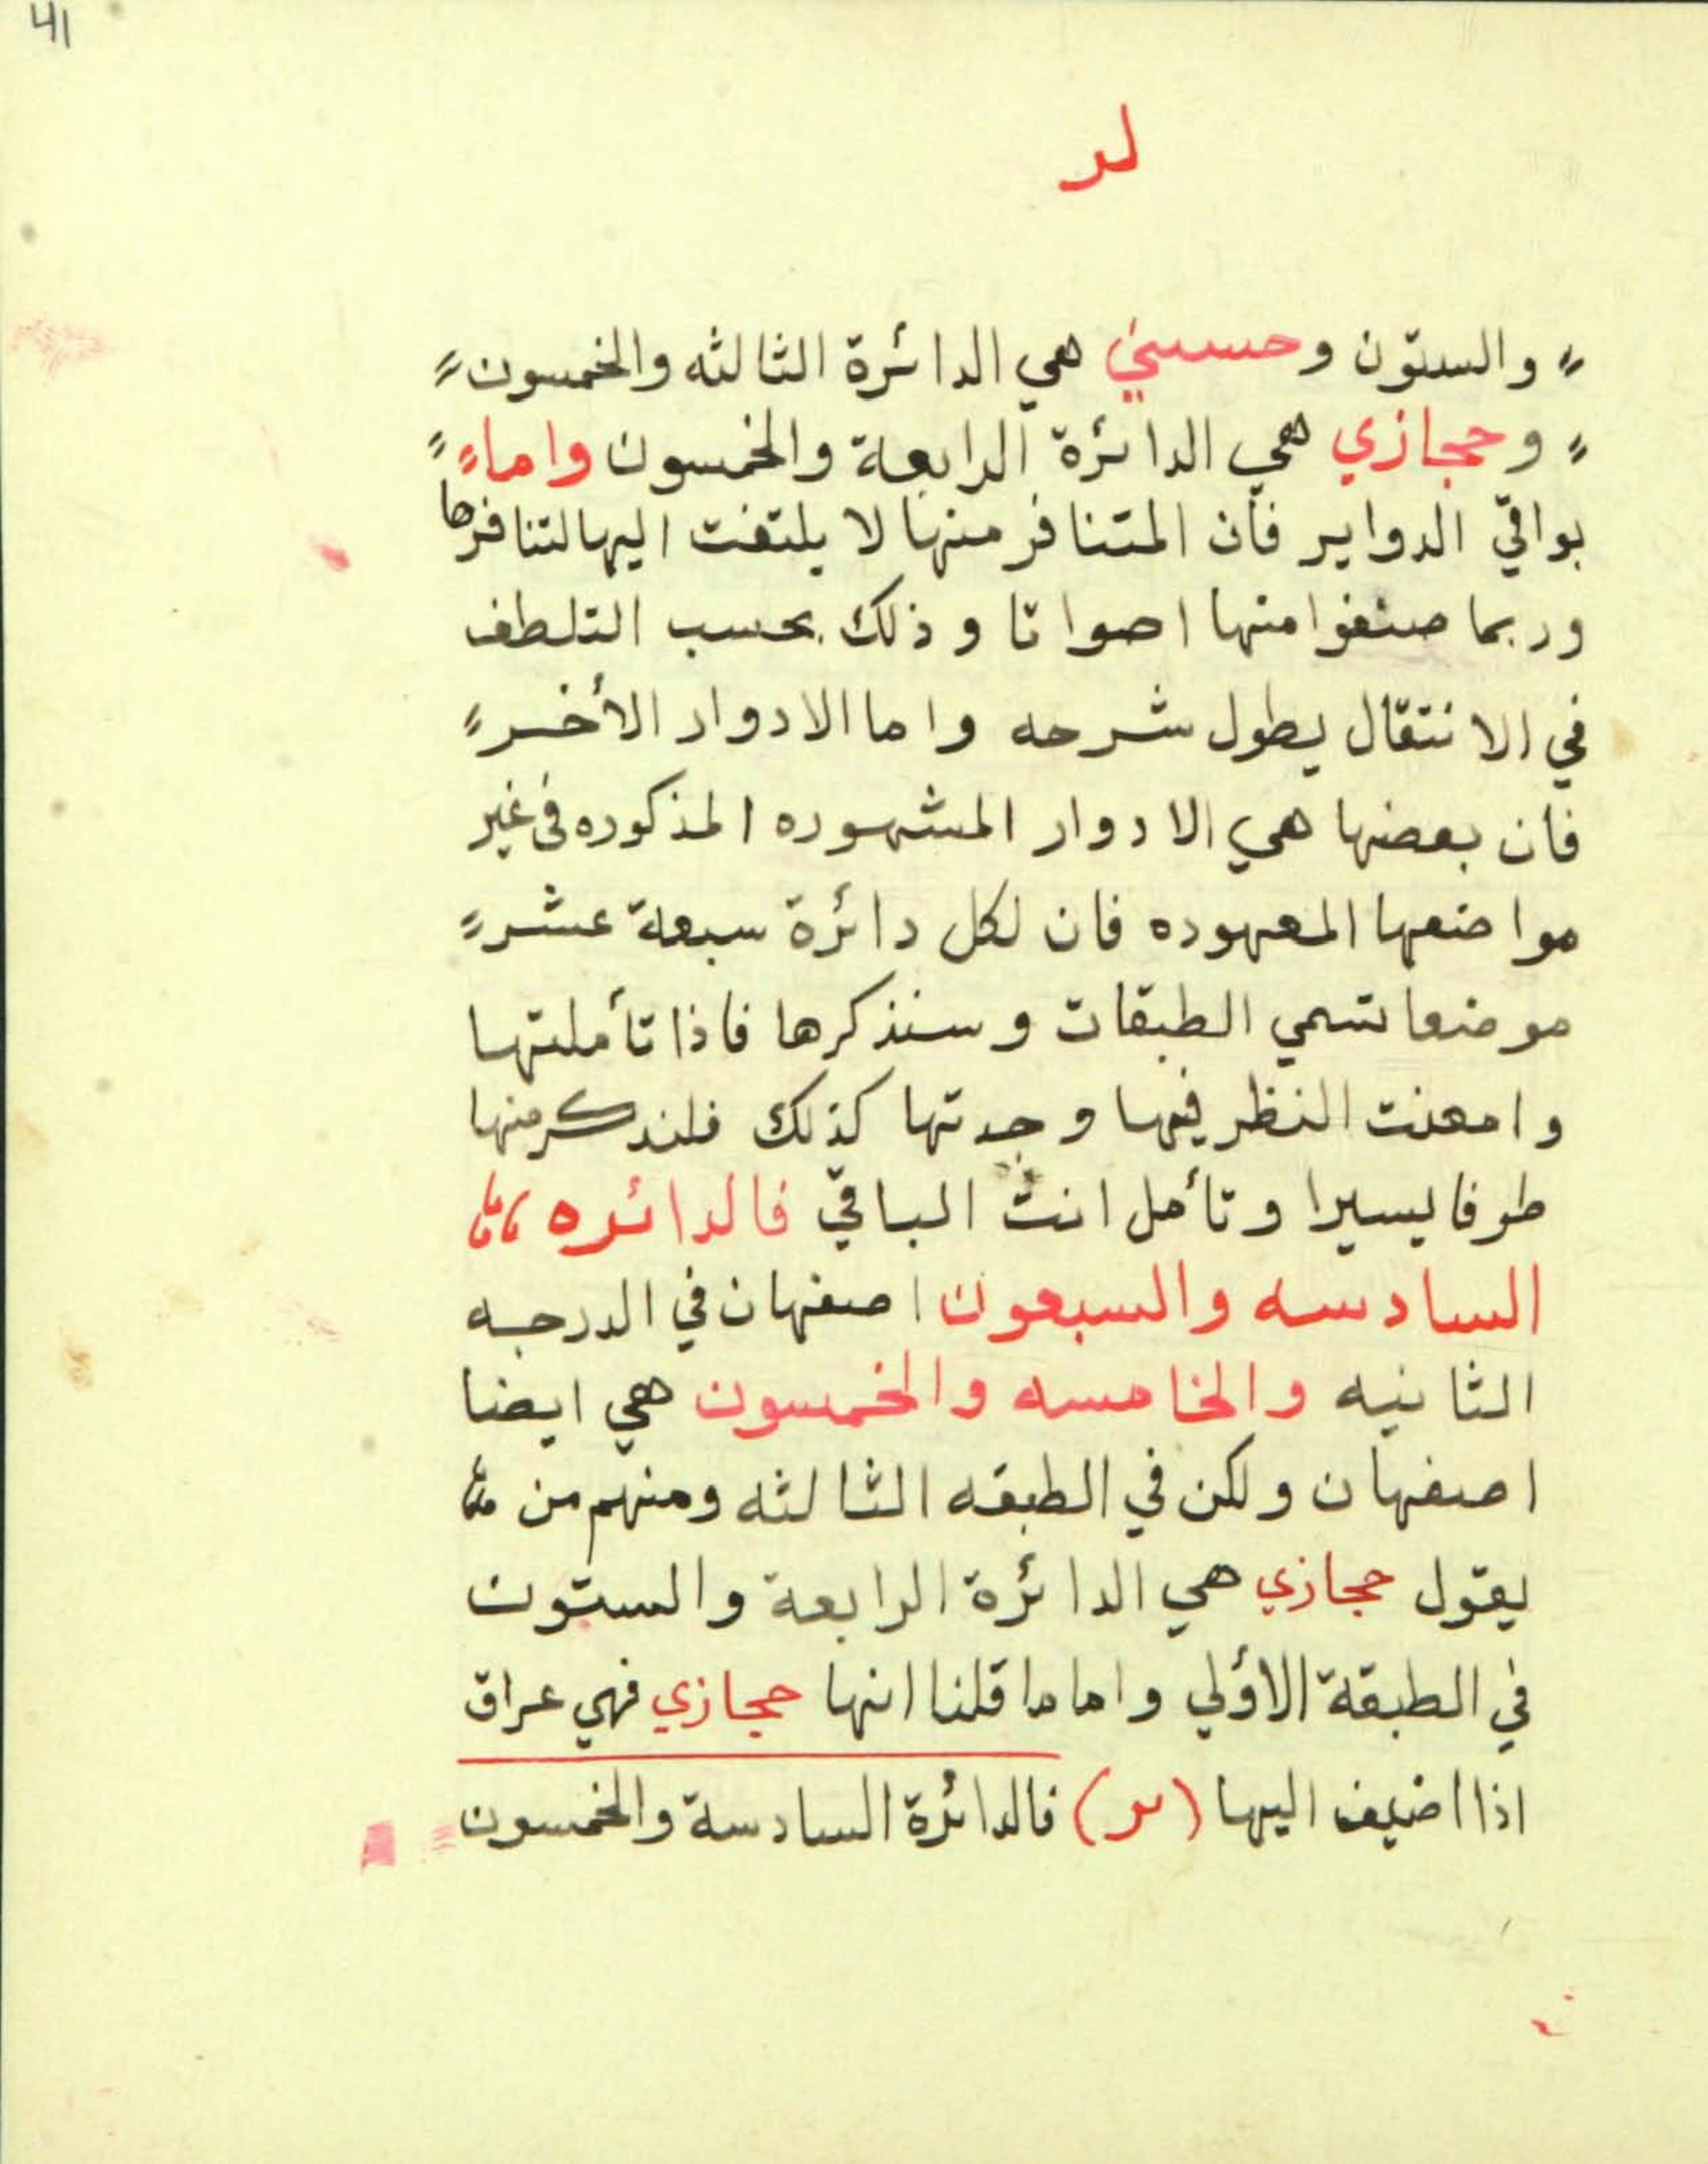 41
لر
والستون وحسيني هي الدائرة الثالثه والخمسون
وحجازي هي الدائرة الرابعة والخمسون واما
بواقي الدواير فان المتنافر منها لا يلتفت اليها لتنافرها
وربما صنفوا منها اصواتا وذلك بحسب التلطف
في الانتقال يطول شرحه واما الادوار الأخر
فان بعضها هي الادوار المشهوره المذكوره في غير
مواضعها المعهوده فان لكل دائرة سبعة عشر
موضعا تسمي الطبقات وسنذكرها فاذا تأملتها
وامعنت النظر فيها وجدتها كذلك فلنذكر منها
طرفا يسيرا وتأمل انت الباقي فالدائره
السادسه والسبعون اصفهان في الدرجه
الثانيه والخامسه والخمسون هي ايضا
اصفهان ولكن في الطبقه الثالثه ومنهم من
يقول حجازي هي الدائرة الرابعة والستون
في الطبقة الاؤلي واما ما قلنا انها حجازي فهي عراق
اذا اضيف اليها فالدائرة السادسة والخمسون